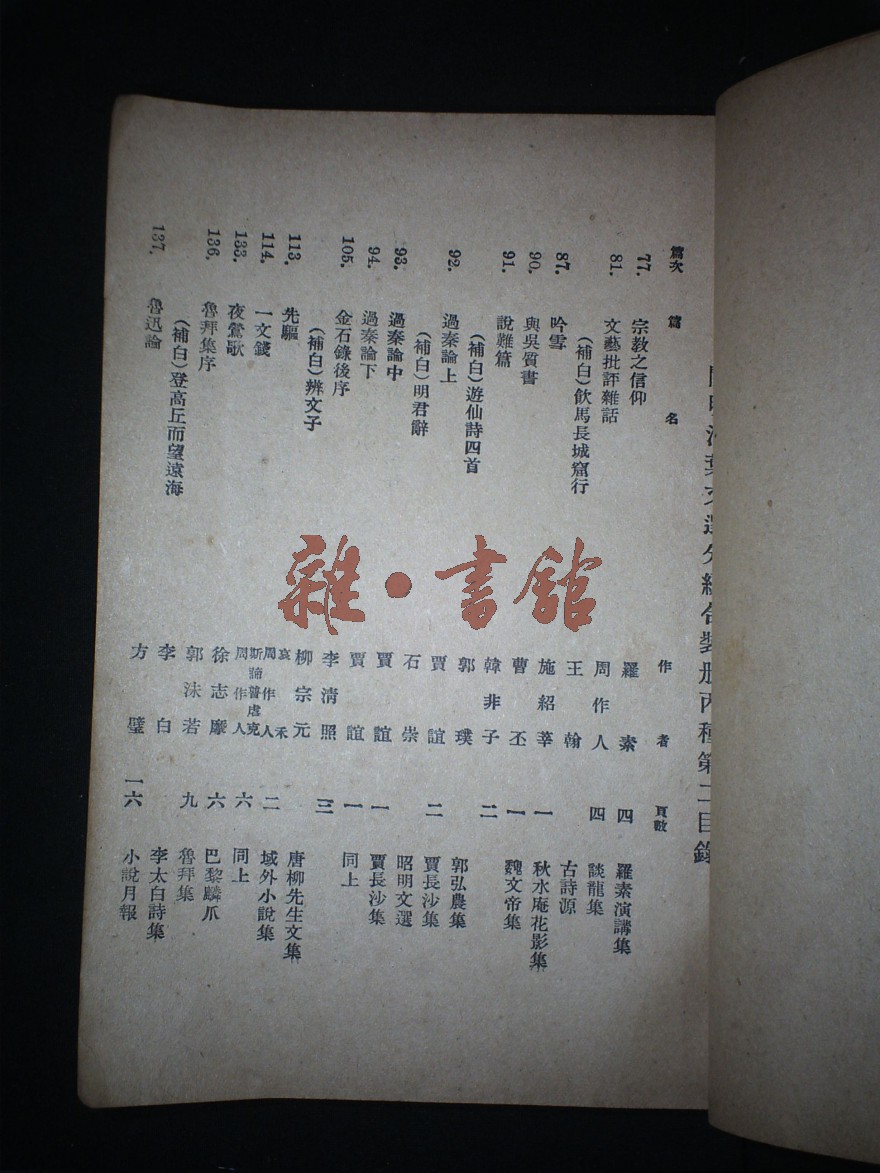 葉文選分組合裝册丙種第二目錄
篇次 篇名 作者 頁數
77. 宗教之信仰 羅素 四 羅素演講集
81. 文藝批評雜話 周作人 四 談龍集
(補白)飲馬長城窟行 王翰 古詩源
87. 吟雪 施紹莘 一 秋水庵花影集
90. 與吳質書 曹丕 一 魏文帝集
91. 說難篇 韓非子 二
(補白)遊仙詩四首 郭璞 郭弘農集
92. 過秦論上 賈誼 二 賈長沙集
(補白)明君辭 石崇 昭明文選
93. 過秦論中 賈誼 一 賈長沙集
94. 過秦論下 賈誼 一 同上
105. 金石錄後序 李清照 三
(補白)辨文子 柳宗元 唐柳先生文集
113. 先驅 哀禾 周作人 二 域外小說集
114. 一文錢 斯諦普虐克 周作人 六 同上
133. 夜鶯歌 徐志摩 六 巴黎麟爪
136. 魯拜集序 郭沫若 九 魯拜集
(補白)登高丘而望遠海 李白 李太白詩集
137. 魯迅論 方璧 一六 小說月報
雜·書館